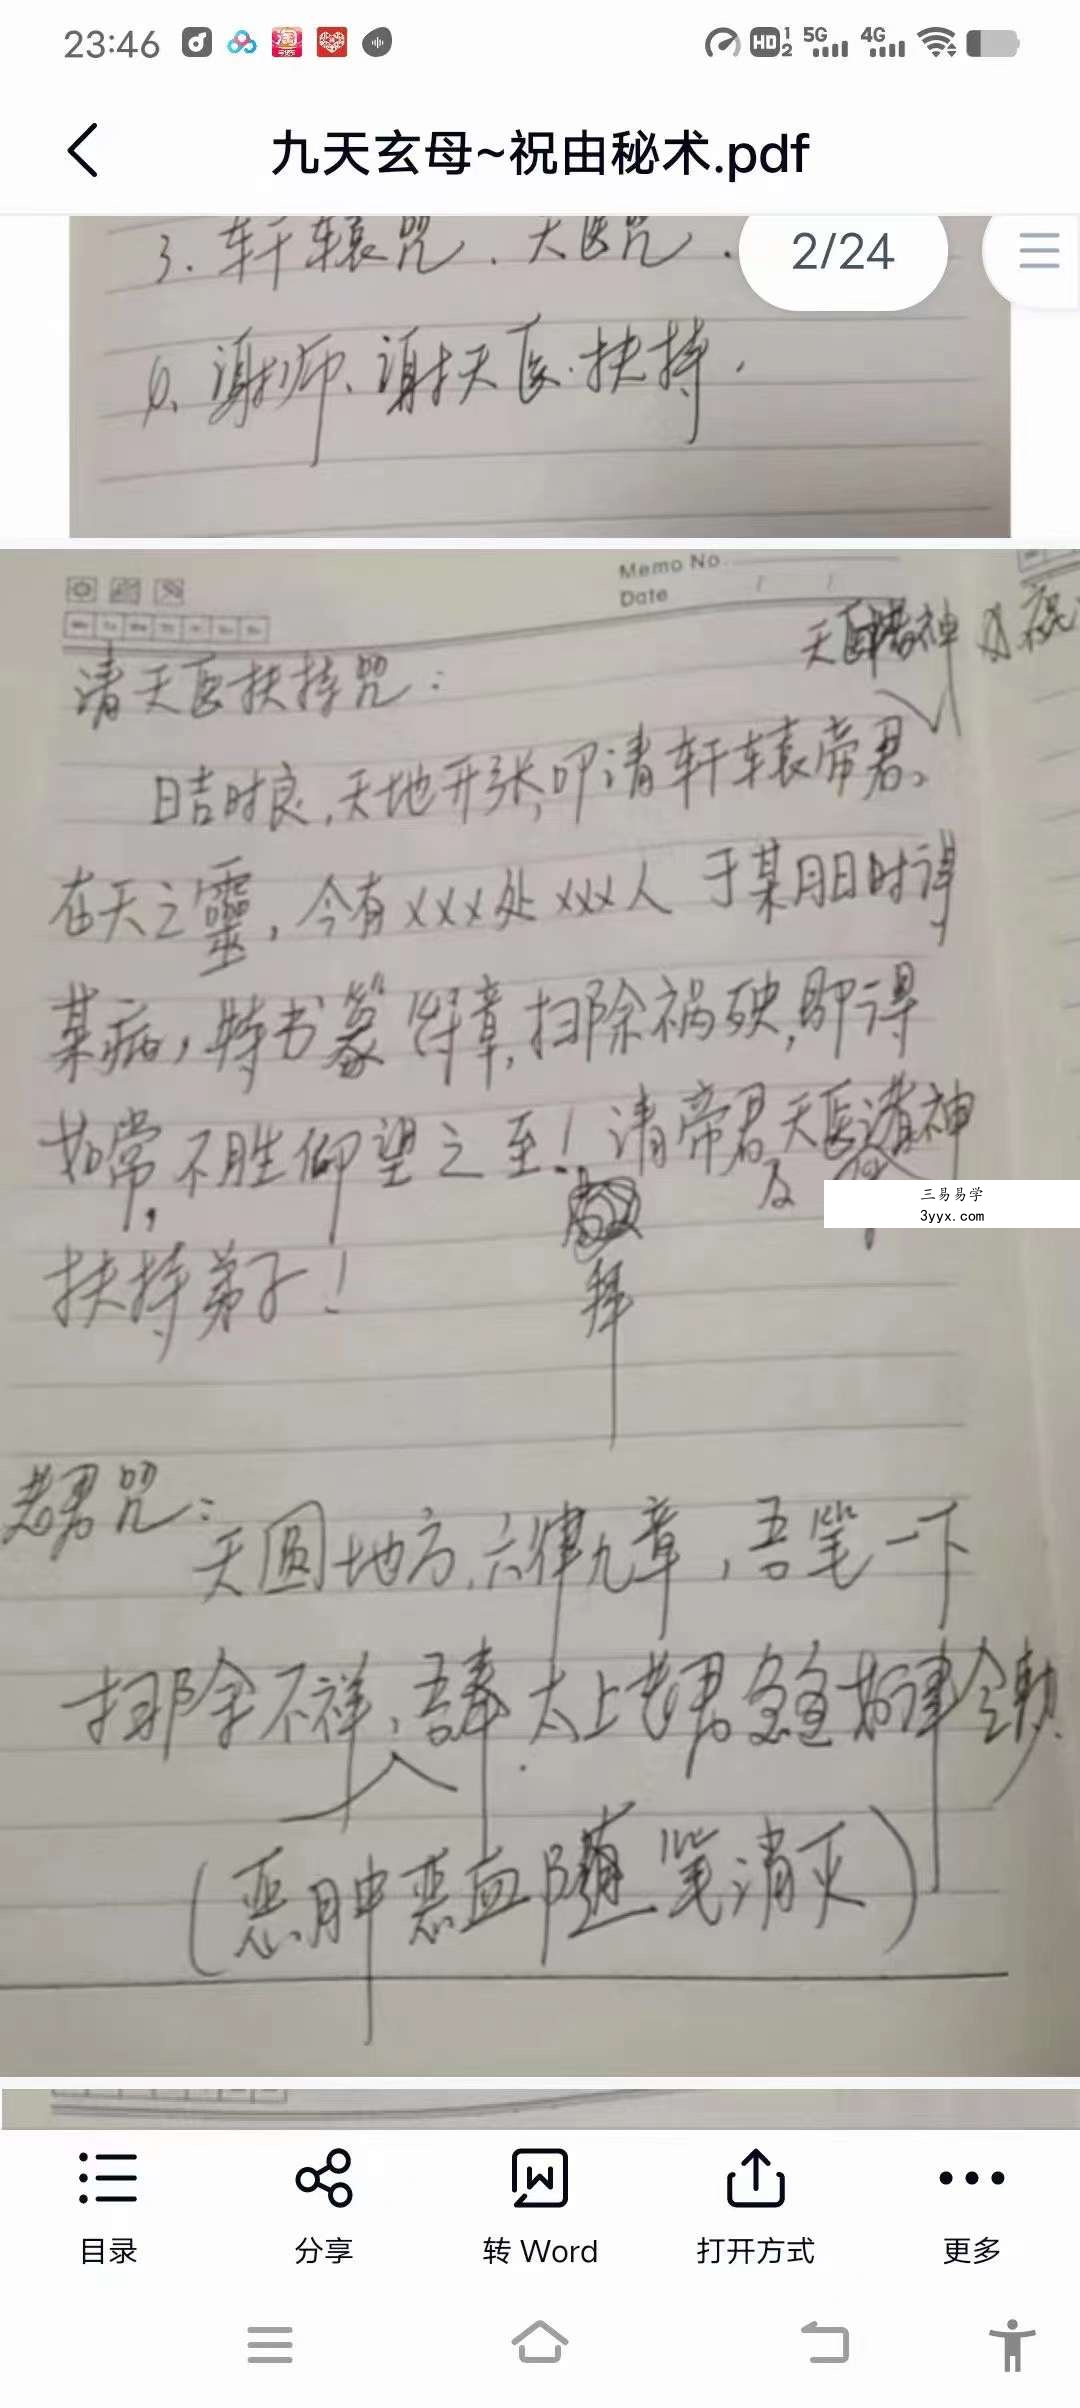 23:46
HD 1 2 5G 4G
九天玄母~祝由秘术.pdf
3. 轩辕咒. 天医咒.
2/24
6. 谢师、谢天医.扶持.
Memo No.
Date / /
天医诸神
请天医扶持咒:
日吉时良,天地开张,叩请轩辕帝君。
在天之靈,今有xxx处xxx人于某月日时得
某病,特书篆符章,扫除祸殃,即得
如常,不胜仰望之至!请帝君天医诸神
及
三易易学
3yyx.com
扶持弟子!
拜
老君咒:
天圆地方,六律九章,吾笔一下
扫除不祥,吾奉.太上老君急急如律令勅.
(恶肿恶血随笔消灭)
目录
分享
转 Word
打开方式
更多